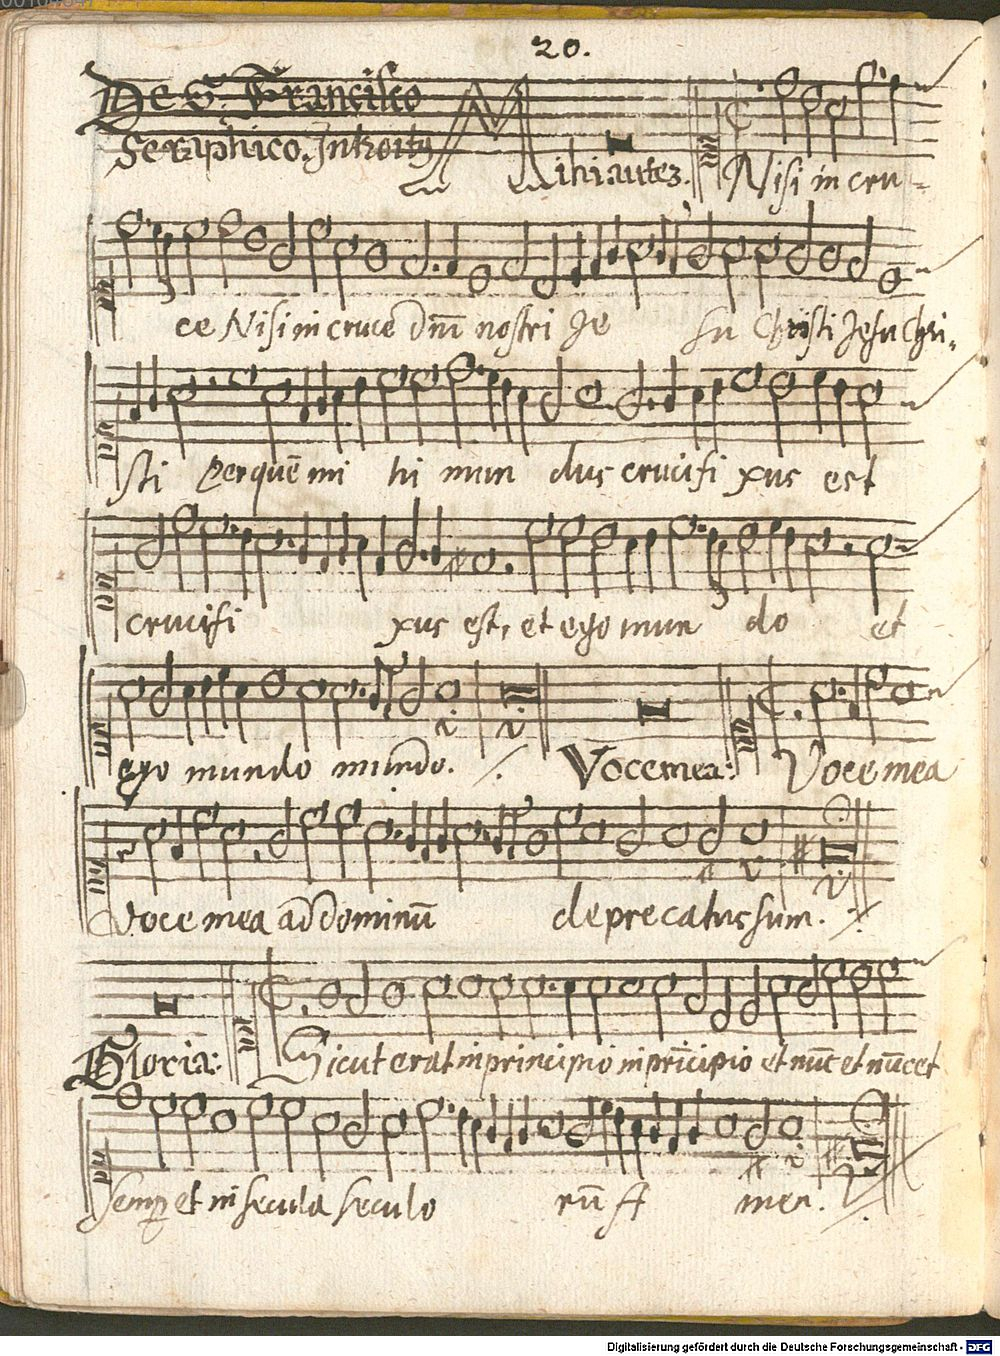 20.
De S. Francisco
Seraphico. Introitus
Mihi autez. Nisi in cru-
ce Nisi in cruce dnī nostri Je su Christi Jesu Chri-
sti Per quē mi hi mun dus crucifi xus est
crucifi xus est, et ego mun do et
ego mundo mundo. Voce mea: Voce mea
Voce mea ad dominū deprecatus sum.
Gloria: Sicut erat in principio in prīcipio et nūc et nūc et
semp et in secula seculo rū A men.
Digitalisierung gefördert durch die Deutsche Forschungsgemeinschaft - DFG